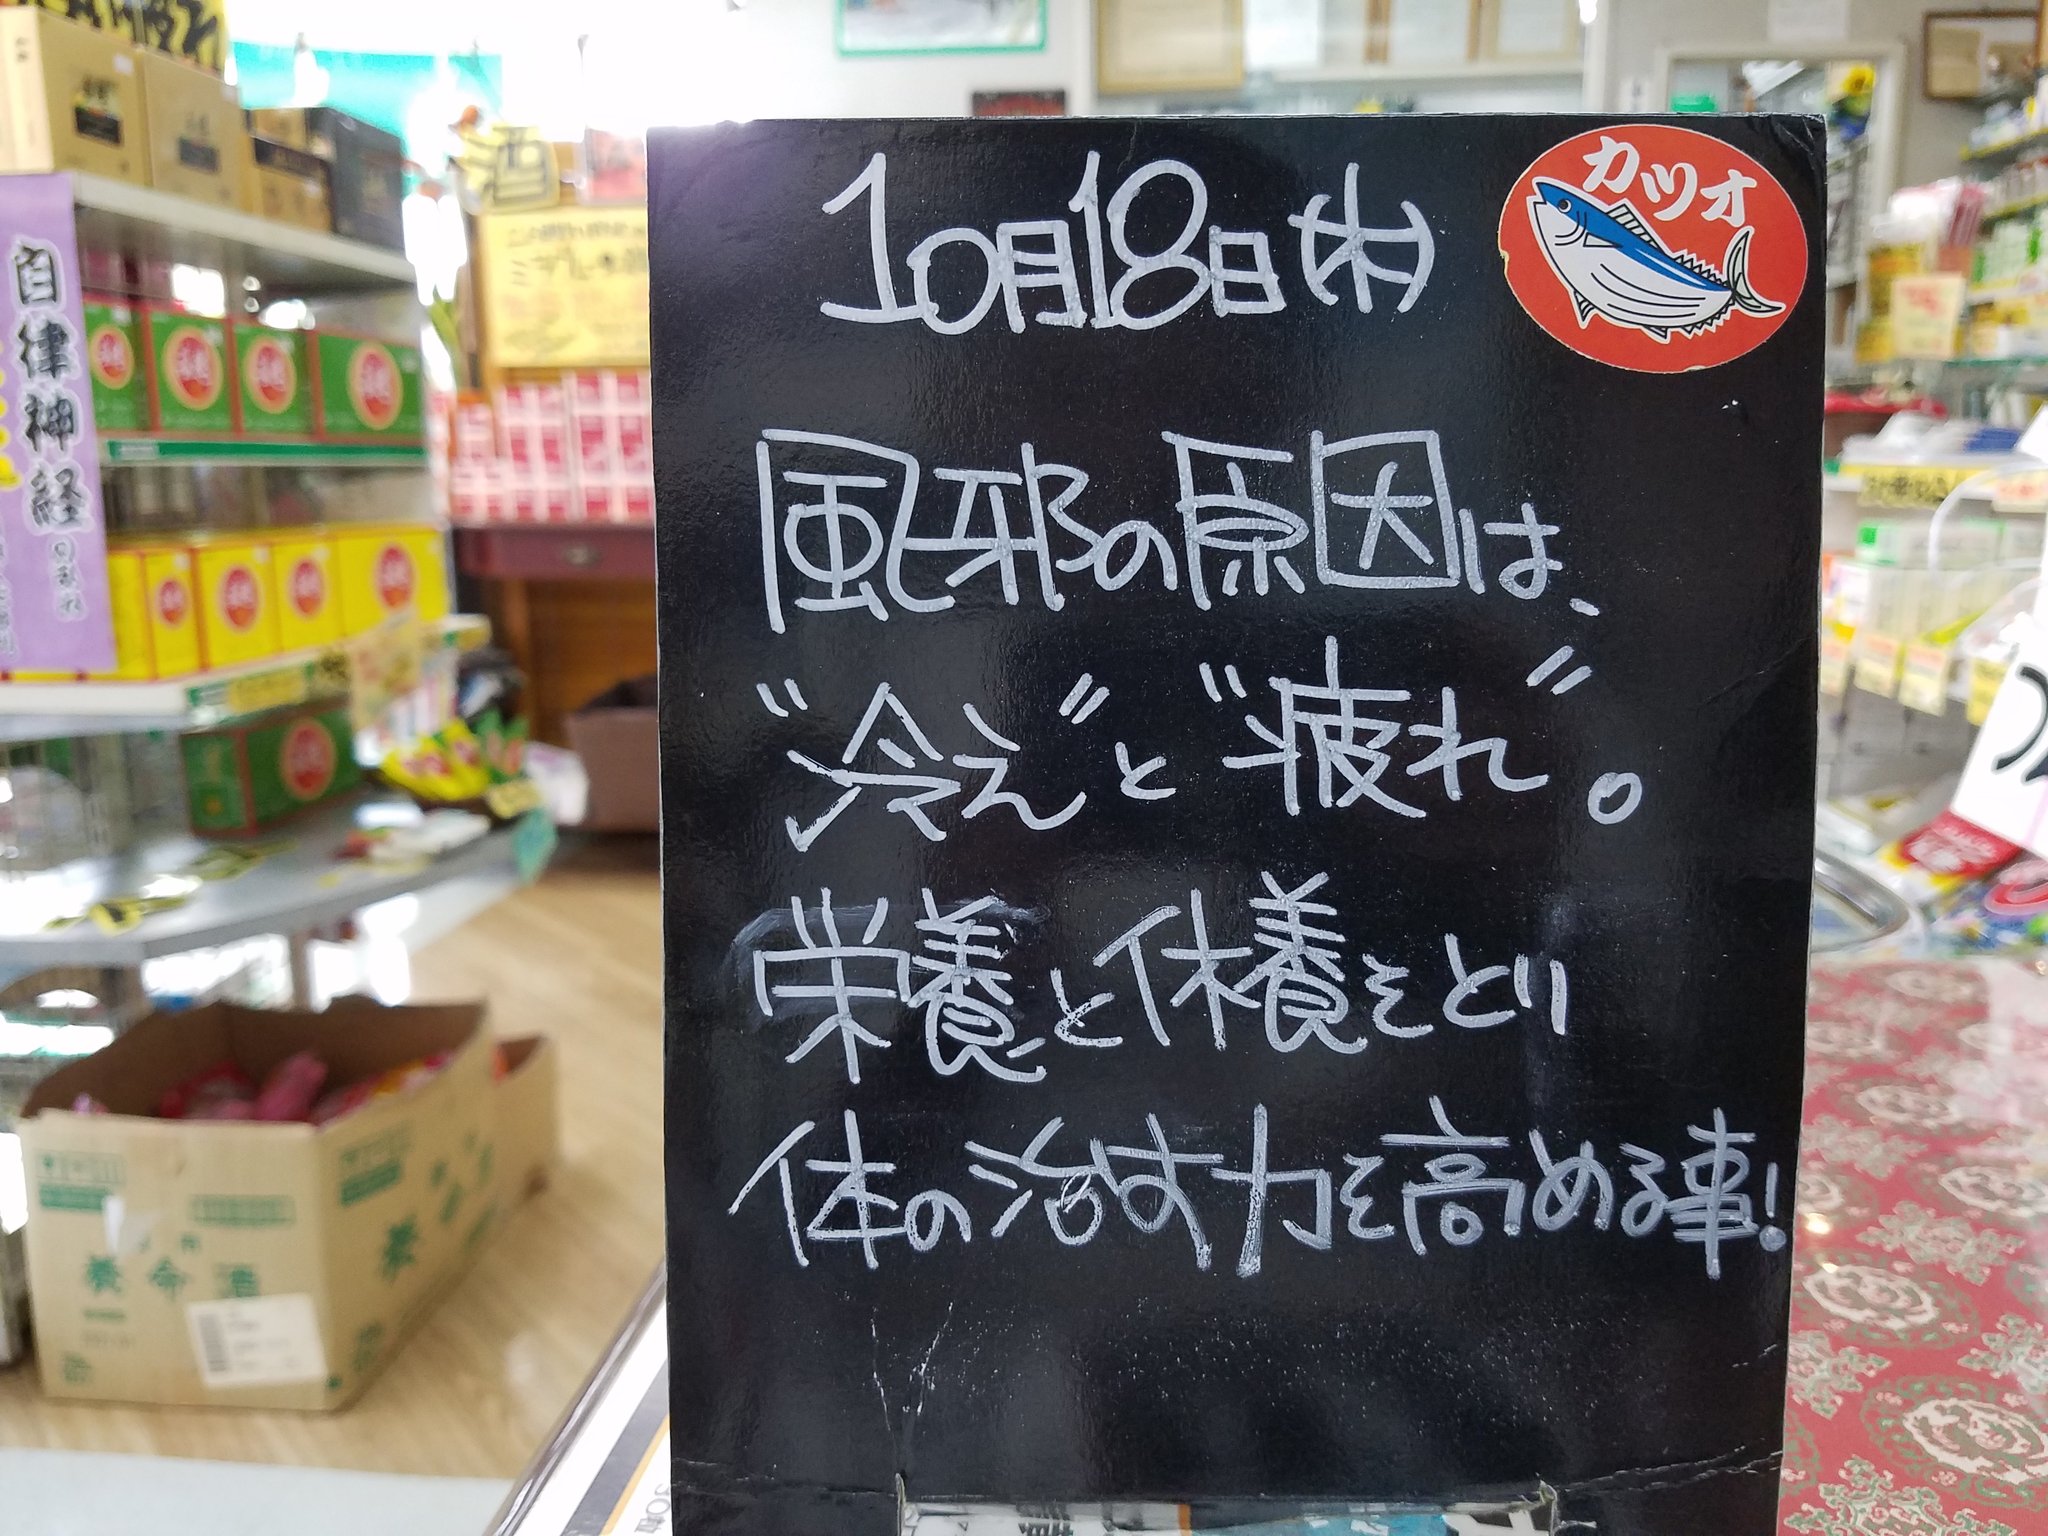 10月18日(木)
カツオ
風邪の原因は、
"冷え"と"疲れ"。
栄養と休養をとり
体の治す力を高める事!
自律神経
酒
養命酒